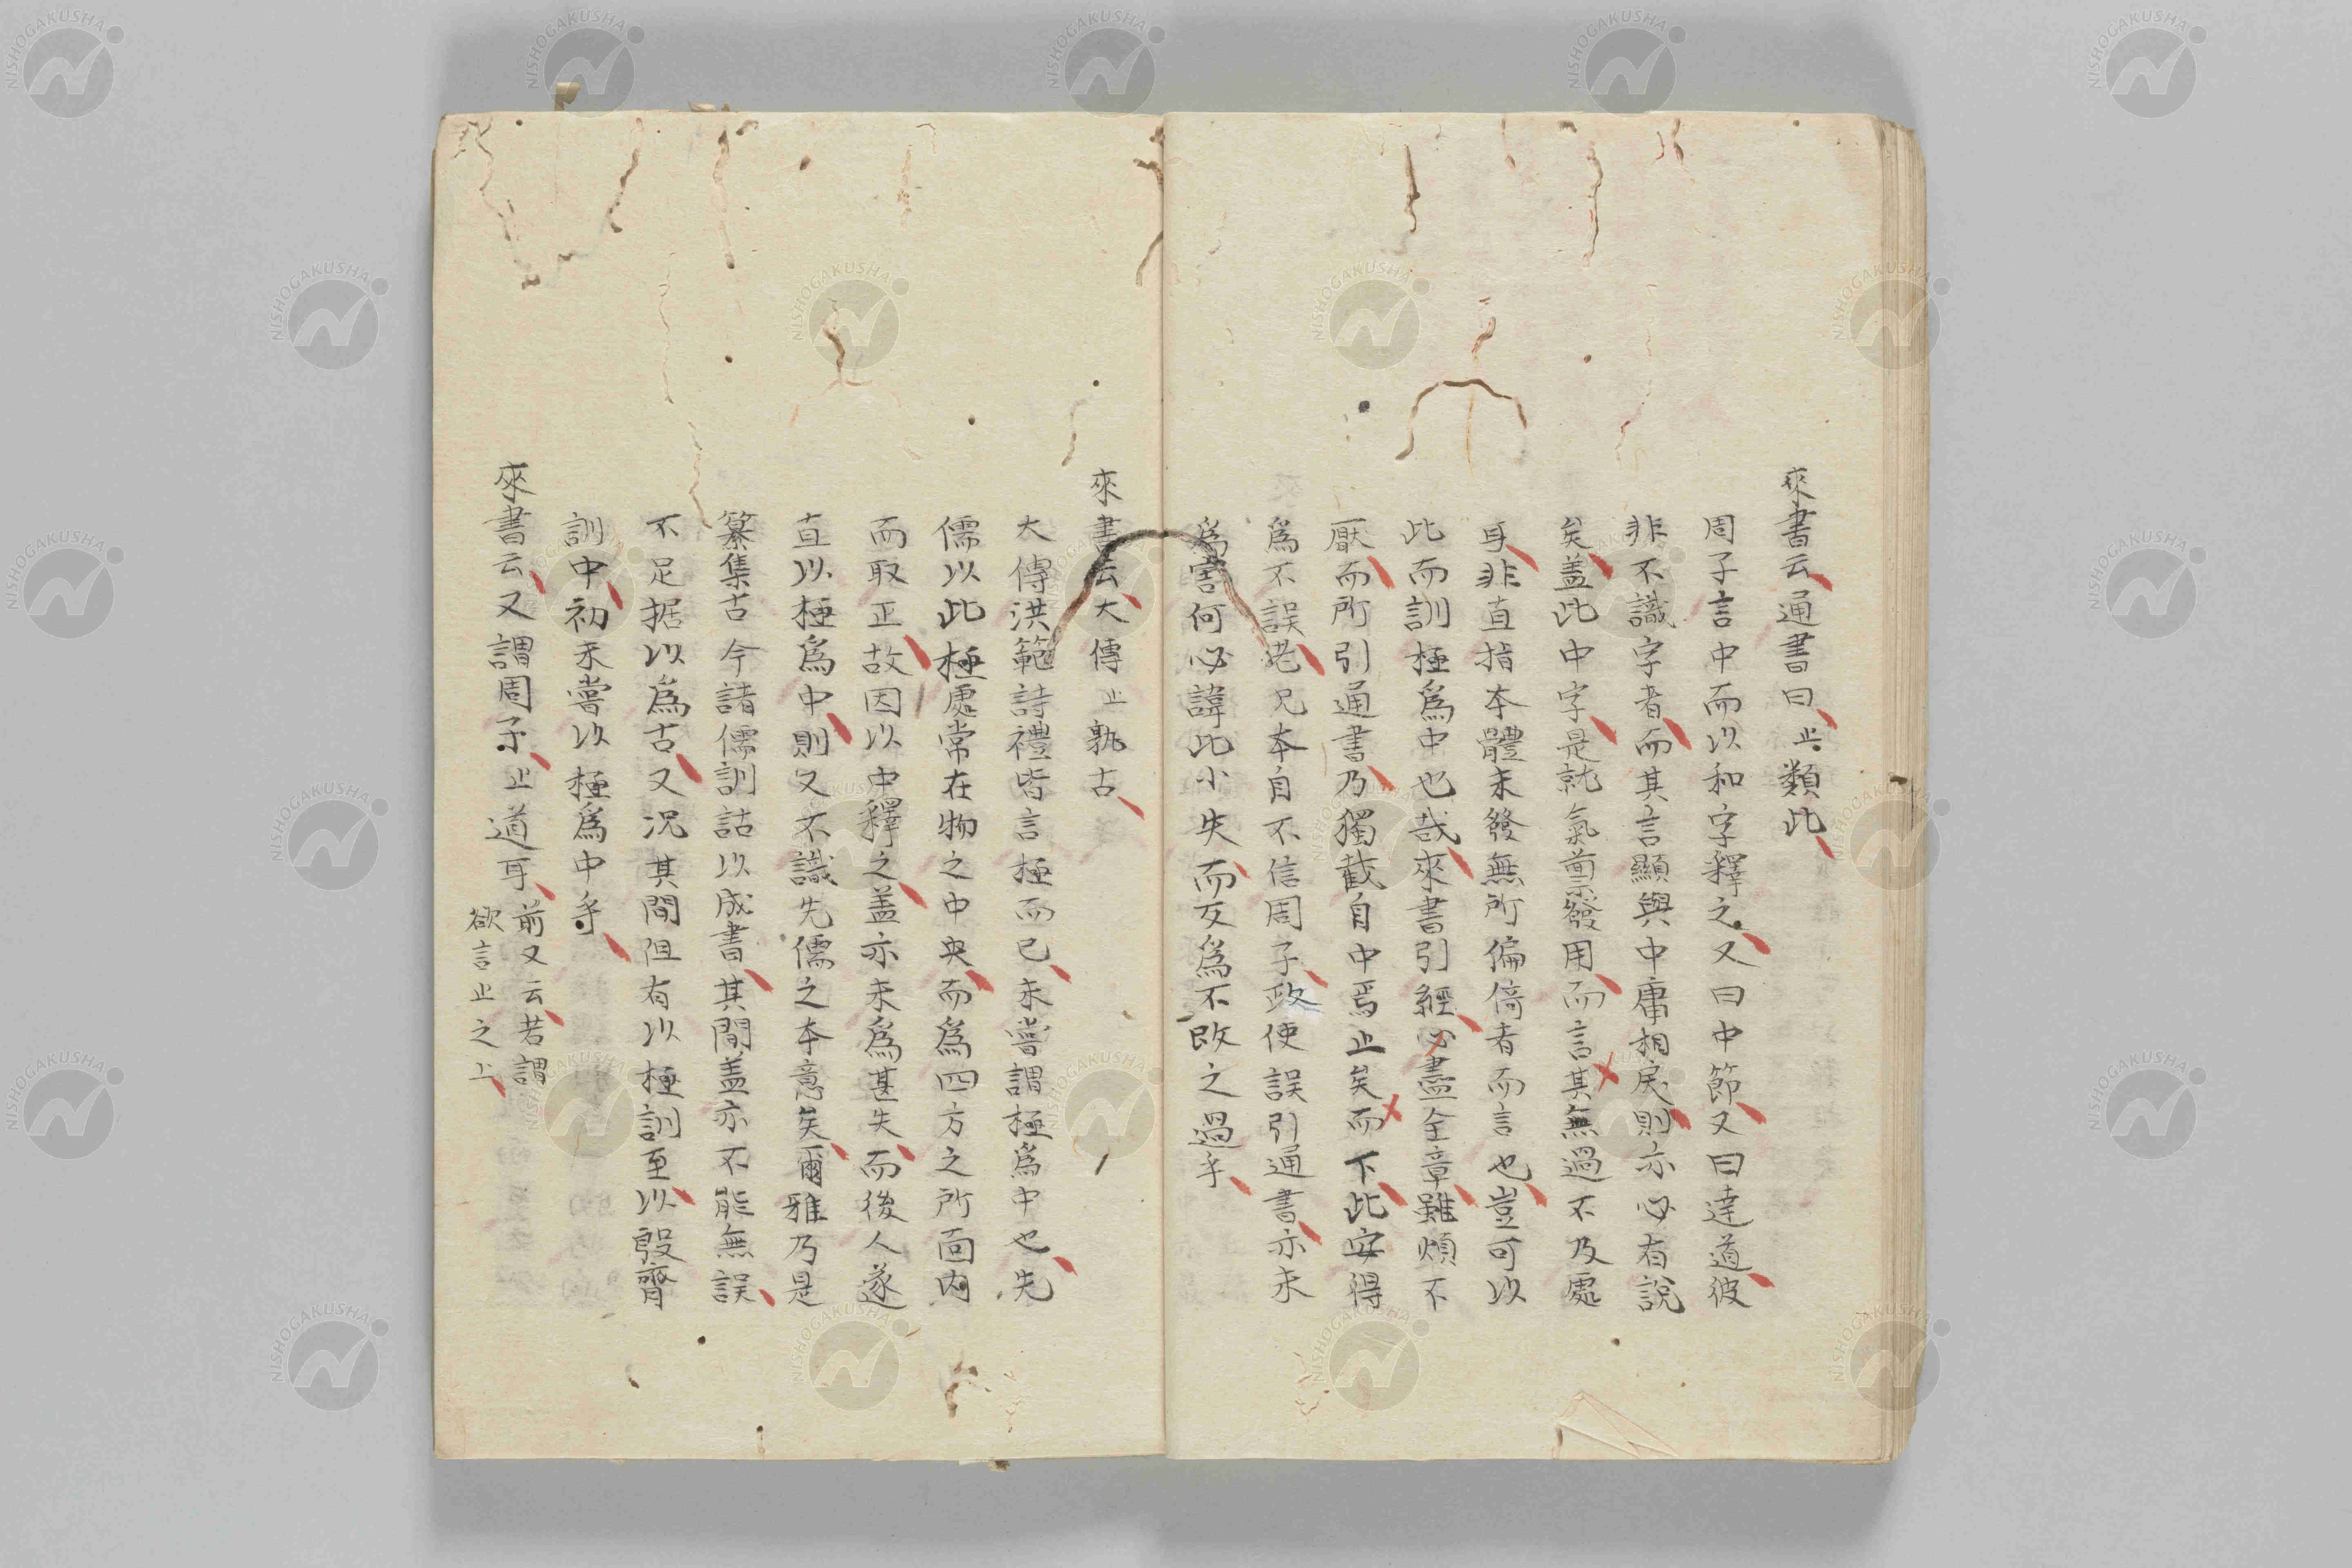 來書云通書曰止類此
周子言中而以和字釋之又曰中節又曰達道彼
非不識字者而其言顯與中庸相戾則亦必有說
矣盖此中字是就氣禀發用而言其無過不及處
耳非直指本體未發無所偏倚者而言也豈可以
此而訓極爲中也哉來書引經必盡全章雖煩不
厭而所引通書乃獨截自中焉止矣而下此安得
爲不誤老兄本自不信周子政使誤引通書亦未
爲害何必諱此小失而反爲不改之過乎
來書云大傳止孰古
大傳洪範詩禮皆言極而已未嘗謂極爲中也先
儒以此極處常在物之中央而爲四方之所面内
而取正故因以中釋之盖亦未爲甚失而後人遂
直以極爲中則又不識先儒之本意矣爾雅乃是
纂集古今諸儒訓詁以成書其間盖亦不能無誤
不足据以爲古又况其間但有以極訓至以殷齊
訓中初未嘗以極爲中乎
來書云又謂周子止道耳前又云若謂
欲言止之上
NISHOGAKUSHA